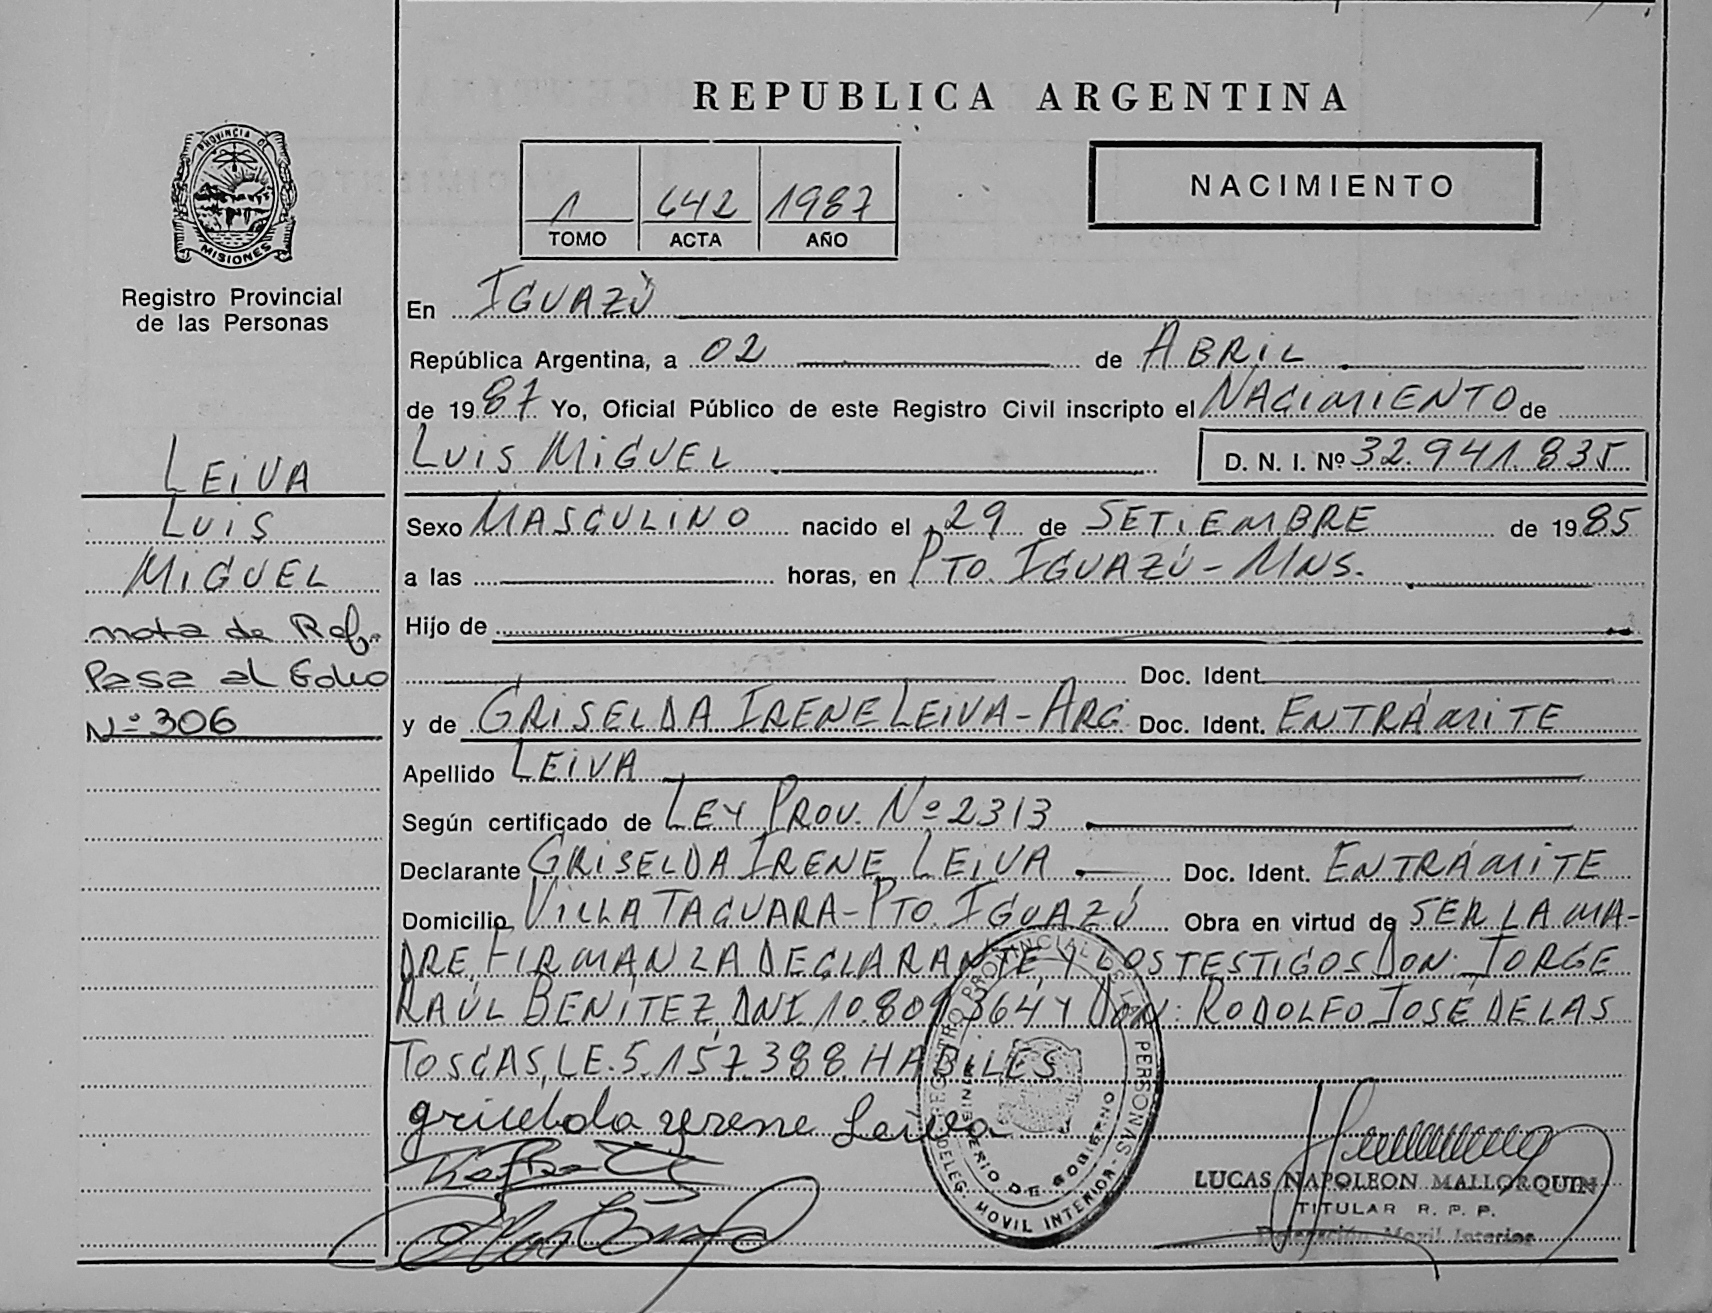 REPUBLICA ARGENTINA
PROVINCIA DE
MISIONES
Registro Provincial
de las Personas
1 642 1987
TOMO ACTA AÑO
NACIMIENTO
En IGUAZÚ
República Argentina, a 02 de ABRIL
de 1987 Yo, Oficial Público de este Registro Civil inscripto el NACIMIENTO de
LUIS MIGUEL D. N. I. Nº 32.941.835
LEIVA
LUIS
MIGUEL
nota de Ref.
Pasa al Folio
Nº 306
Sexo MASCULINO nacido el 29 de SETIEMBRE de 1985
a las horas, en PTO. IGUAZÚ - MNS.
Hijo de
Doc. Ident.
y de GRISELDA IRENE LEIVA - ARG. Doc. Ident. EN TRÁMITE
Apellido LEIVA
Según certificado de LEY PROV. Nº 2313
Declarante GRISELDA IRENE LEIVA Doc. Ident. EN TRÁMITE
Domicilio VILLA TACUARA - PTO. IGUAZÚ Obra en virtud de SER LA MA-
DRE, FIRMAN LA DECLARANTE Y LOS TESTIGOS DON: JORGE
RAÚL BENÍTEZ, DNI 10.809.364 Y DON: RODOLFO JOSÉ DE LAS
TOSCAS, LE. 5.157.388 HABILES
griselda yrene Leiva
REGISTRO PROVINCIAL DE LAS PERSONAS
MINISTERIO DE GOBIERNO
DELEG. MOVIL INTERIOR
LUCAS NAPOLEON MALLORQUIN
TITULAR R. P. P.
Delegación Movil Interior